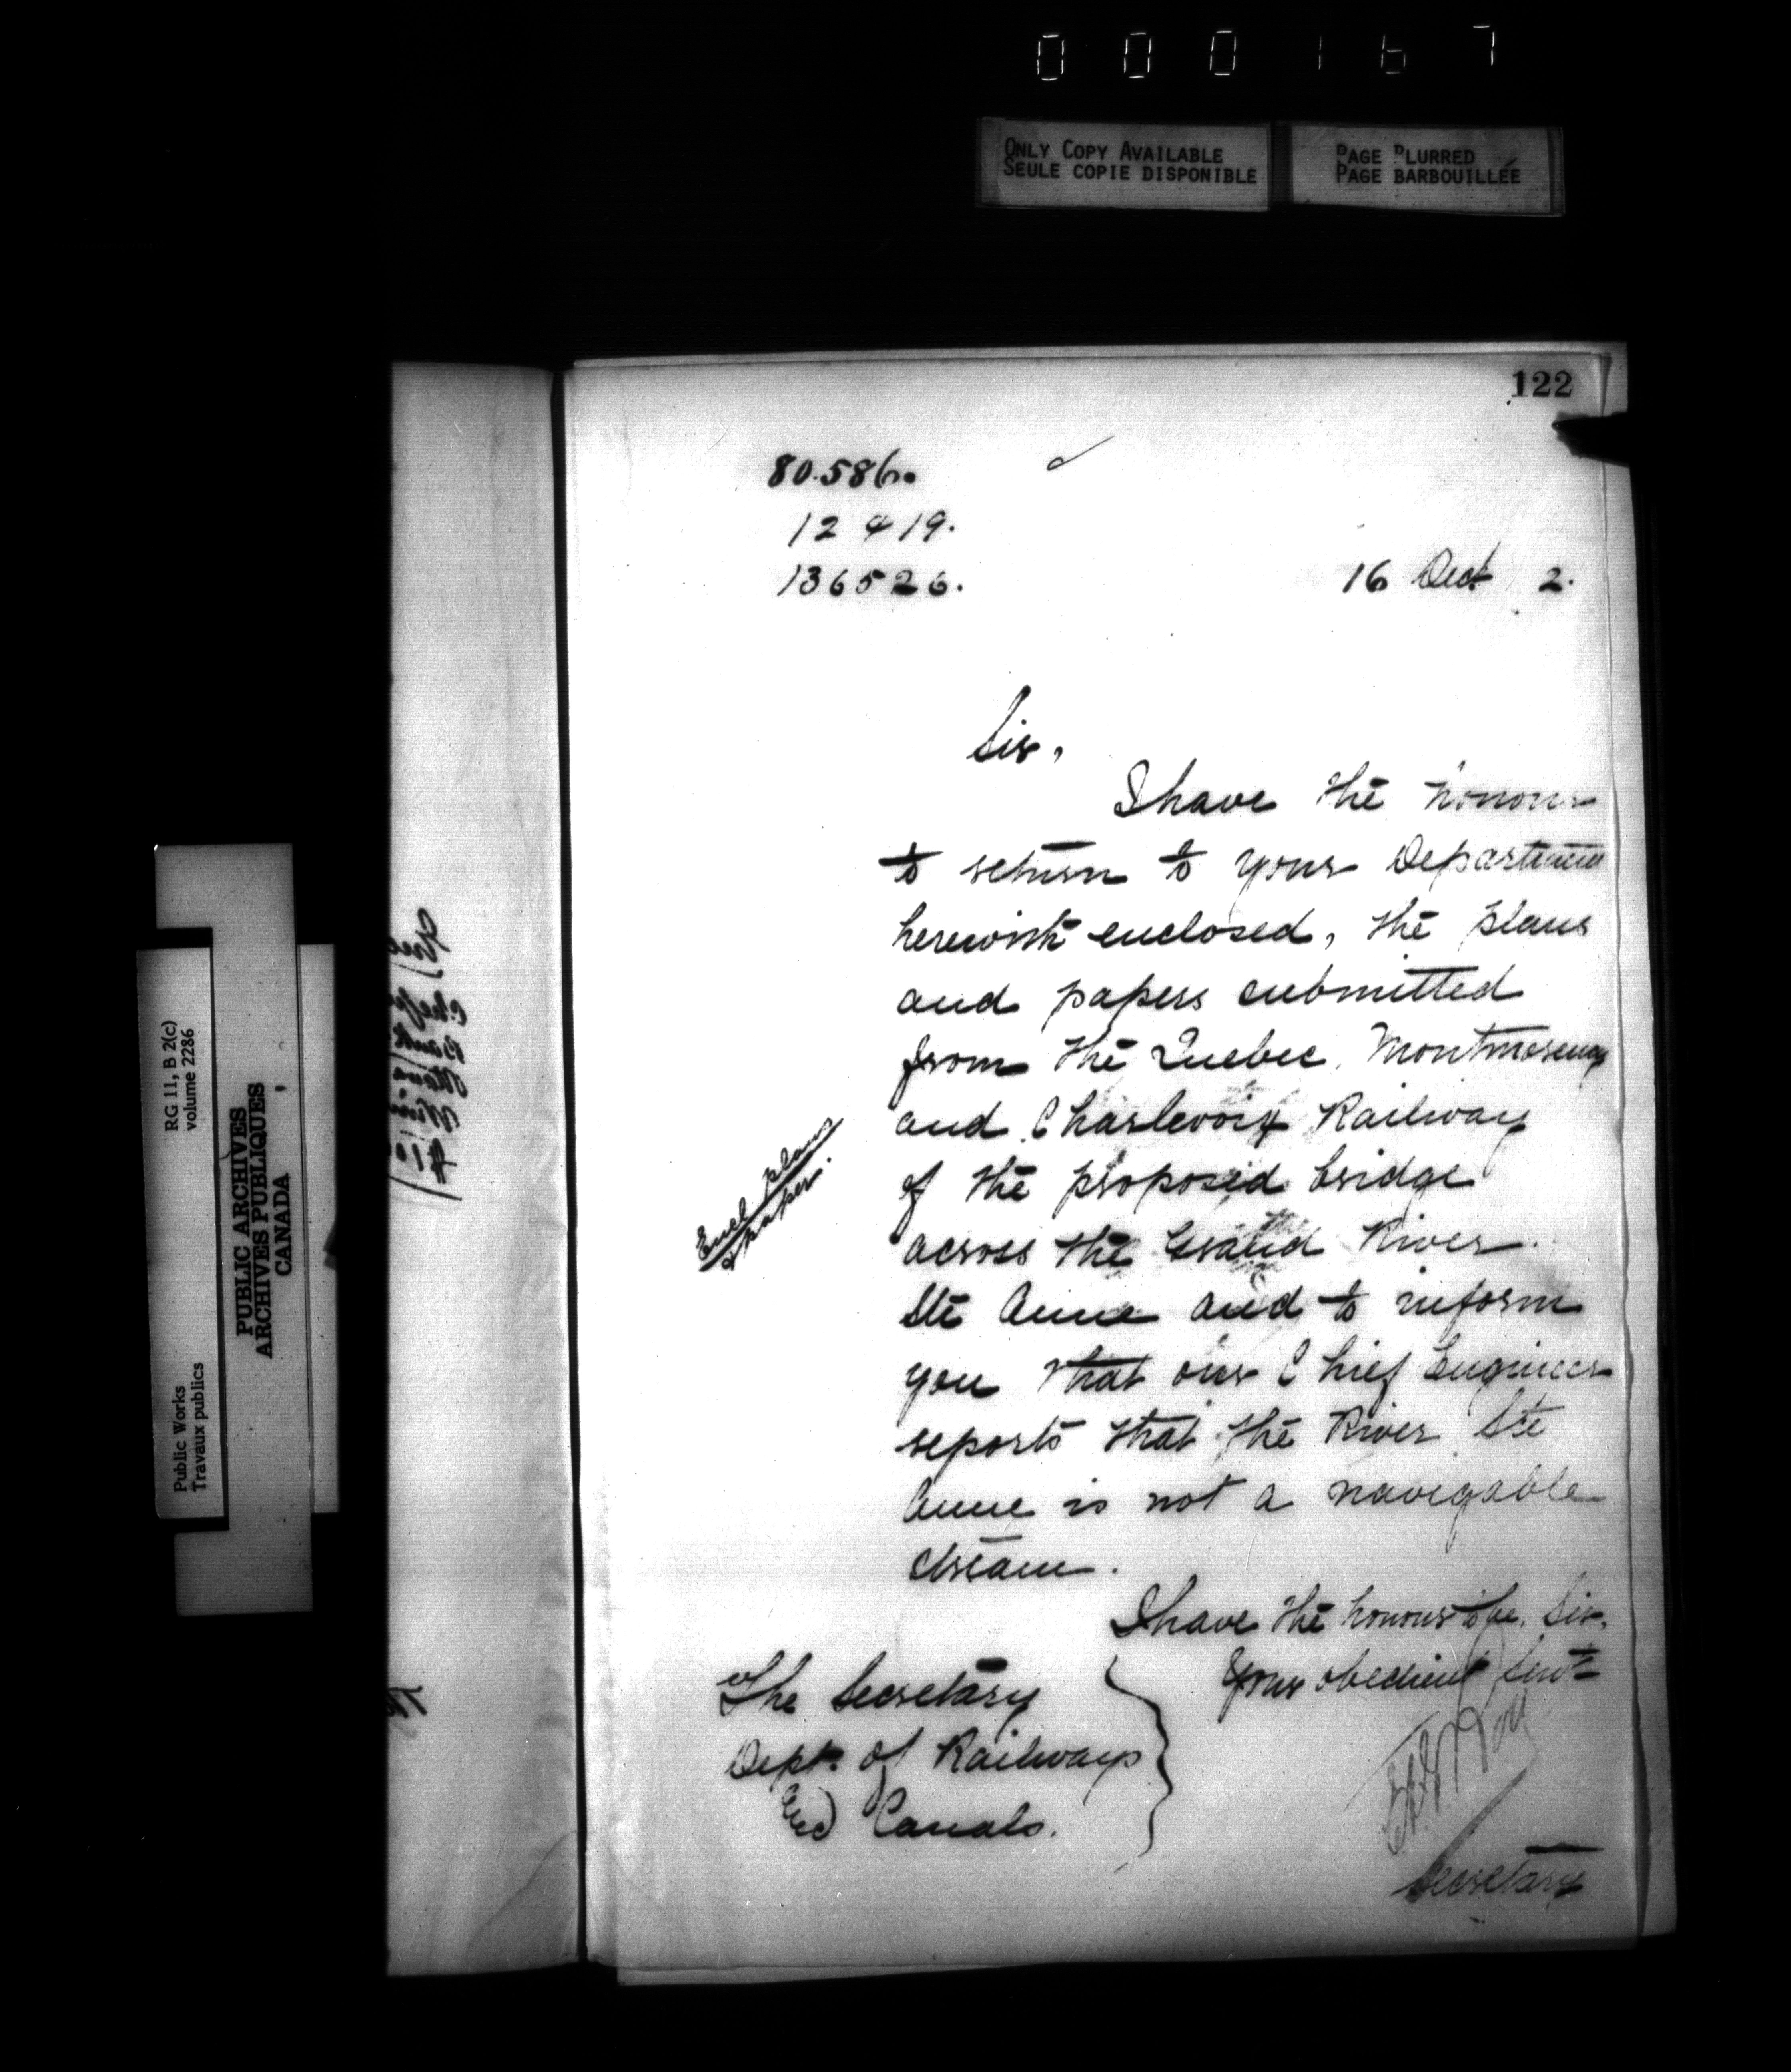 000167
ONLY COPY AVAILABLE
SEULE COPIE DISPONIBLE
PAGE BLURRED
PAGE BARBOUILLÉE
122
80.586.
12419.
136526.
16 Dec. 2.
Sir,
I have the honour
to return to your Department
herewith enclosed, the plans
and papers submitted
from the Quebec, Montmorency
and Charlevoix Railway
of the proposed bridge
across the Grand River
Ste Anne and to inform
you that our Chief Engineer
reports that the River Ste
Anne is not a navigable
stream.
Encl plans
& paper.
I have the honour to be, Sir,
Your obedient Servt
Secretary
The Secretary
Dept. of Railways
and Canals.
RG 11, B 2(c)
volume 2286
Public Works
Travaux publics
PUBLIC ARCHIVES
ARCHIVES PUBLIQUES
CANADA